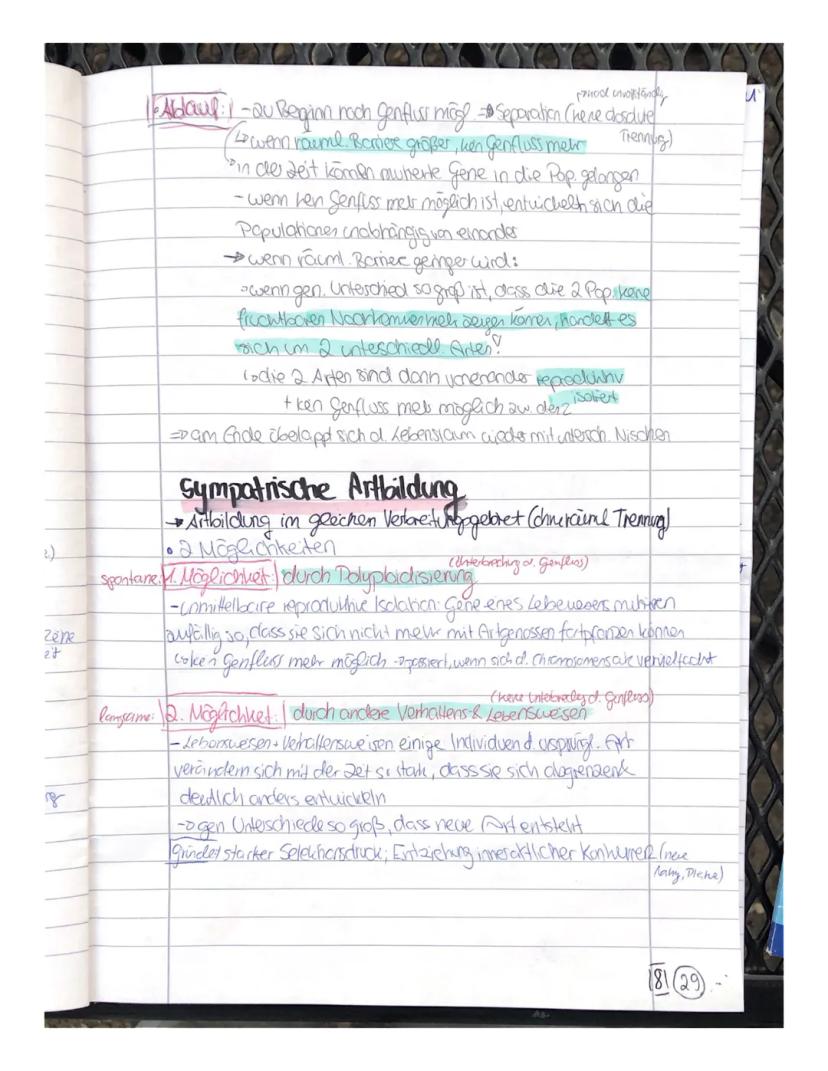 Ablauf: - zu Beginn noch Genfluss mögl. => Separation (keine absolute Trennung)
↳ wenn räuml. Barriere größer, kein Genfluss mehr
in der Zeit können mutierte Gene in die Pop. gelangen
- wenn kein Genfluss mehr möglich ist, entwickeln sich die
Populationen unabhängig von einander
→ wenn räuml. Barriere geringer wird:
wenn gen. Unterschied so groß ist, dass die 2 Pop. keine
fruchtbaren Nachkommen mehr zeugen können, handelt es
sich um 2 unterschiedl. Arten!
↳ die 2 Arten sind dann voneinander reproduktiv isoliert
+ kein Genfluss mehr möglich zw. den 2
=> am Ende überlappt sich d. Lebensraum wieder mit untersch. Nischen
Sympatrische Artbildung
→ Artbildung im gleichen Verbreitungsgebiet (ohne räuml. Trennung)
• 2 Möglichkeiten
(Unterbrechung d. Genfluss)
spontane: 1. Möglichkeit: durch Polyploidisierung
- unmittelbare reproduktive Isolation: Gene eines Lebewesens mutieren
zufällig so, dass sie sich nicht mehr mit Artgenossen fortpflanzen können
↳ kein Genfluss mehr möglich → passiert, wenn sich d. Chromosomensatz vervielfacht
(keine Unterbrechung d. Genfluss)
langsame: 2. Möglichkeit: durch andere Verhaltens- & Lebensweisen
- Lebensweisen + Verhaltensweisen einige Individuen d. ursprüngl. Art
verändern sich mit der Zeit so stark, dass sie sich abgrenzen &
deutlich anders entwickeln
→ gen. Unterschiede so groß, dass neue Art entsteht
Gründe: starker Selektionsdruck; Entziehung innerartlicher Konkurrenz (neue
181 29